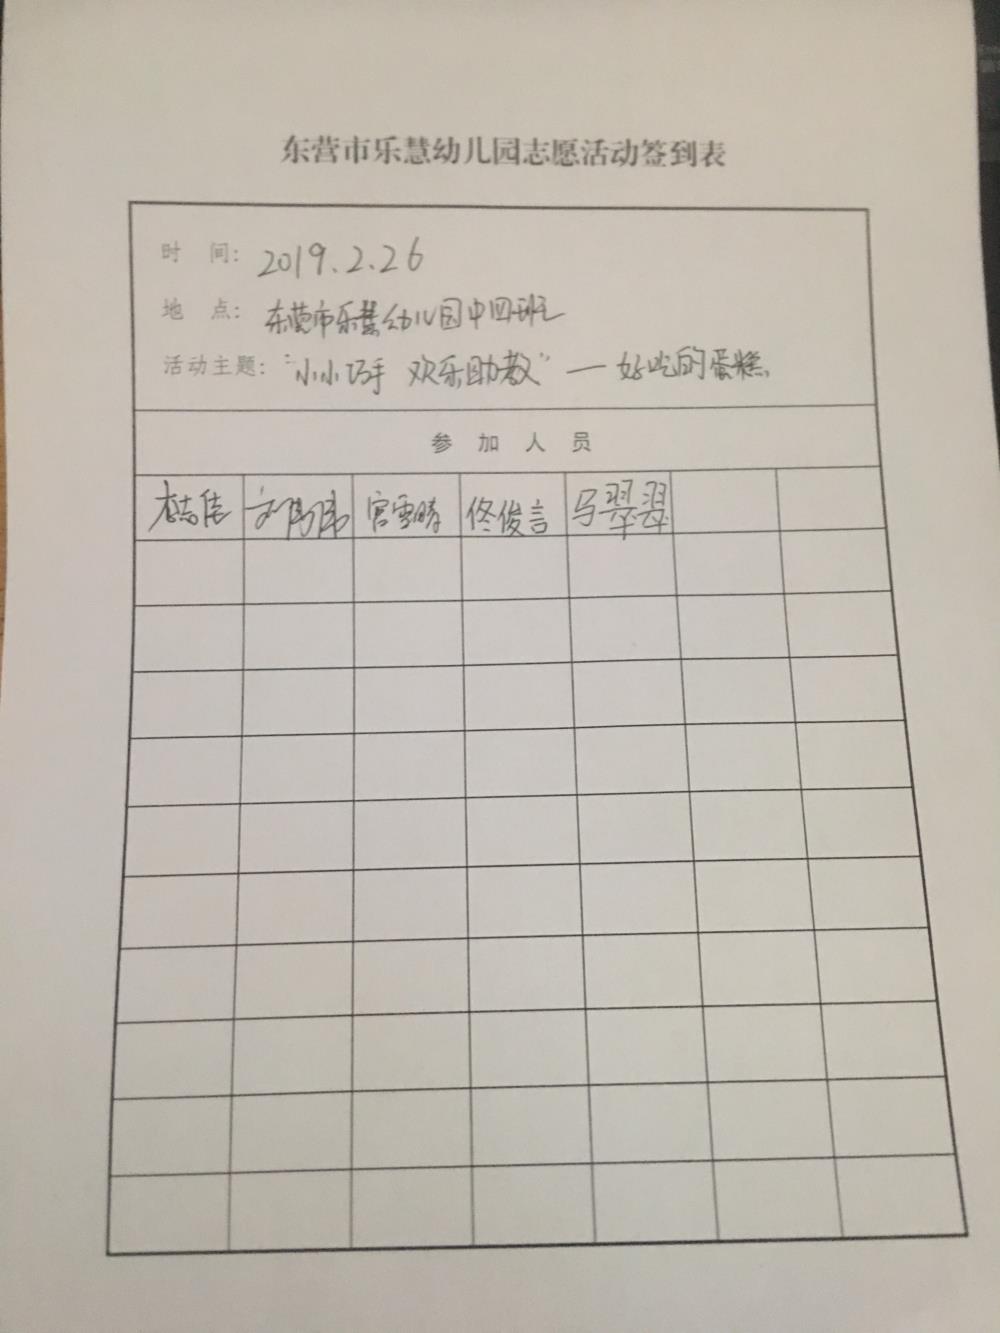 东营市乐慧幼儿园志愿活动签到表
时 间: 2019.2.26
地 点: 东营市乐慧幼儿园中四班
活动主题: “小小巧手 欢乐助教”—好吃的蛋糕
参 加 人 员
宫雪晴 佟俊言 马翠翠